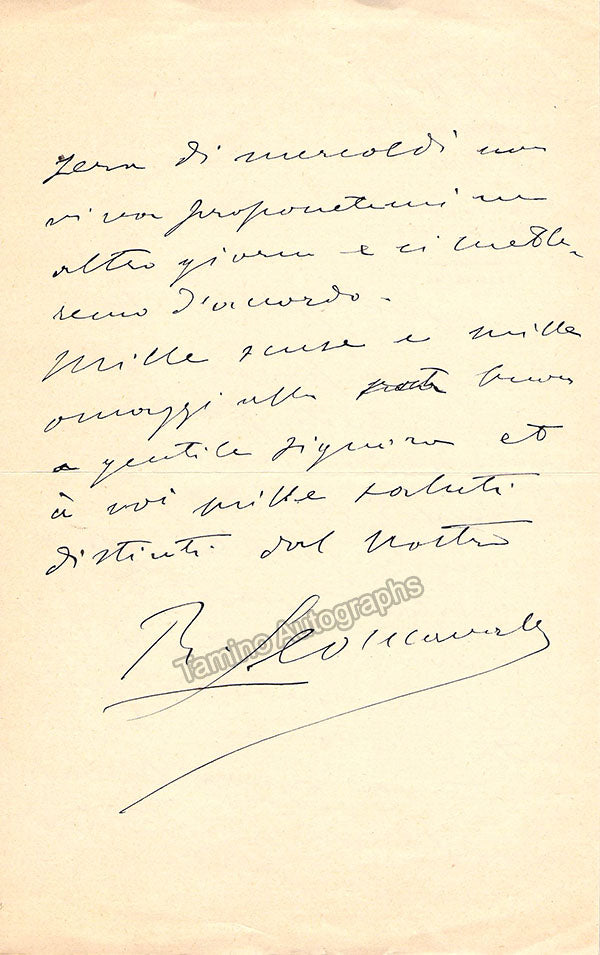 sera di mercoldi non
vi va proponetemi un
altro giorno e ci mette-
remo d'accordo -
Mille scuse e mille
omaggi alla buona
e gentile signora et
à voi mille saluti
distinti dal Vostro
R. Leoncavallo
Tamino Autographs